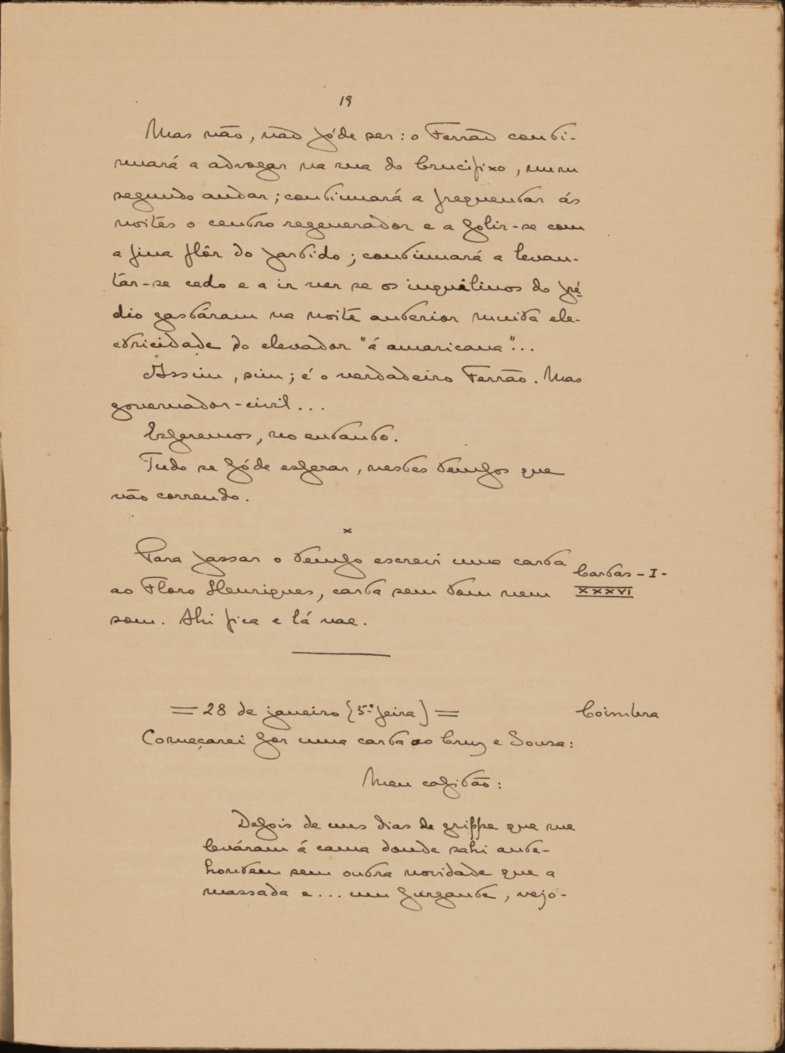 19
Mas não, não póde ser: o Ferrão conti-
nuará a advogar na rua do Crucifixo, num
segundo andar; continuará a frequentar ás
noites o centro regenerador e a polir-se com
a fina flôr do partido; continuará a levan-
tar-se cedo e a ir ver se os inquilinos do pré-
dio gastáram na noite anterior muita ele-
ctricidade do elevador "á americana"...
Assim, sim; é o verdadeiro Ferrão. Mas
governador-civil...
Esperemos, no entanto.
Tudo se póde esperar, nestes tempos que
vão correndo.
×
Para passar o tempo escrevi uma carta
Cartas - I -
ao Floro Henriques, carta sem tom nem
XXXVI
som. Ahi fica e lá vae.
= 28 de janeiro (5ª feira) =
Coimbra
Começarei por uma carta ao Cruz e Sousa:
Meu capitão:
Depois de uns dias de grippe que me
leváram á cama donde sahi ante-
hontem sem outra novidade que a
massada e... um purgante, vejo-